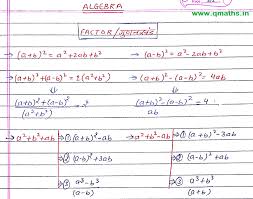 ALGEBRA
www.qmaths.in
FACTOR / गुणनखंड
→ (a+b)² = a²+2ab+b² → (a-b)² = a²-2ab+b²
→ (a+b)²+(a-b)² = 2(a²+b²) → (a+b)²-(a-b)² = 4ab
⇓ ⇓
(a+b)²+(a-b)² / a²+b² = 2 (a+b)²-(a-b)² / ab = 4
→ a²+b²+ab → ① (a+b)²-ab → a²+b²-ab → ① (a+b)²-3ab
→ ② (a-b)²+3ab → ② (a-b)²+ab
→ ③ a³-b³ / (a-b) → ③ a³+b³ / (a+b)